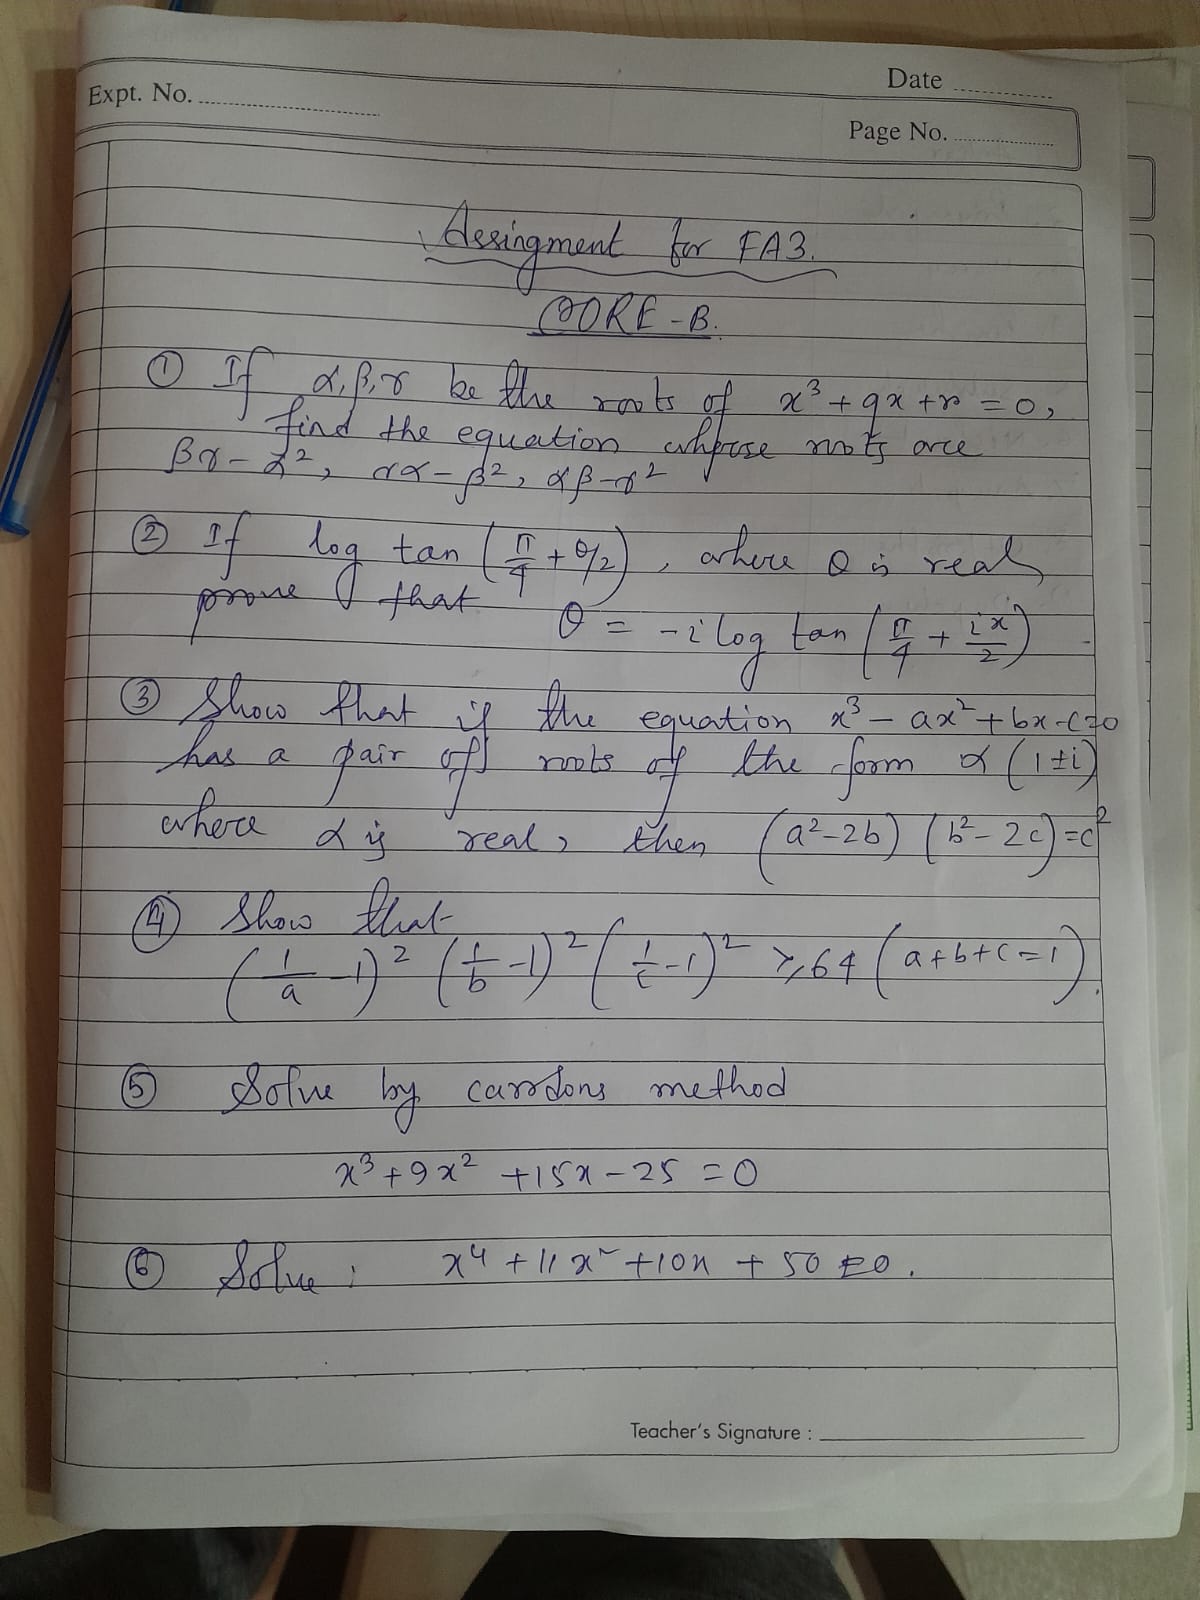 Date
Expt. No.
Page No.
Assingment for FA3.
CORE-B.
① If α, β, γ be the roots of x³ + qx + r = 0,
find the equation whose roots are
βγ - α², γα - β², αβ - γ²
② If log tan (π/4 + θ/2), where θ is real,
prove that θ = -i log tan (π/4 + ix/2)
③ Show that if the equation x³ - ax² + bx - c = 0
has a pair of roots of the form α (1 ± i)
where α is real, then (a² - 2b) (b² - 2c) = c²
④ Show that
(1/a - 1)² (1/b - 1)² (1/c - 1)² ≥ 64 (a+b+c = 1).
⑤ Solve by carrdons method
x³ + 9x² + 15x - 25 = 0
⑥ Solve : x⁴ + 11x² + 10x + 50 = 0.
Teacher's Signature :